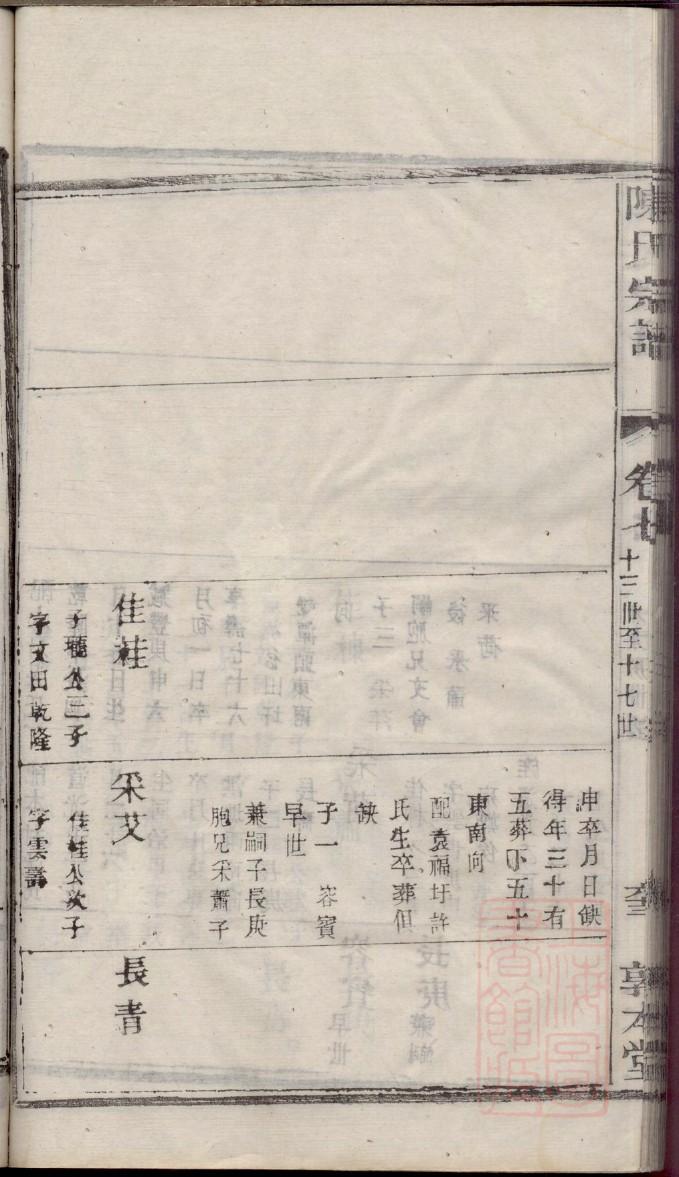 陳氏宗譜
卷七
十三世至十七世
敦本堂
佳桂
子瓏公三子
字文田乾隆
申卒月日缺
得年三十有
五葬下五十
東南向
配袁福圩許
氏生卒葬俱
缺
子一 容賓
早世
兼嗣子長庚
胞兄采蕭子
采艾
佳桂公次子
字雲壽
長青